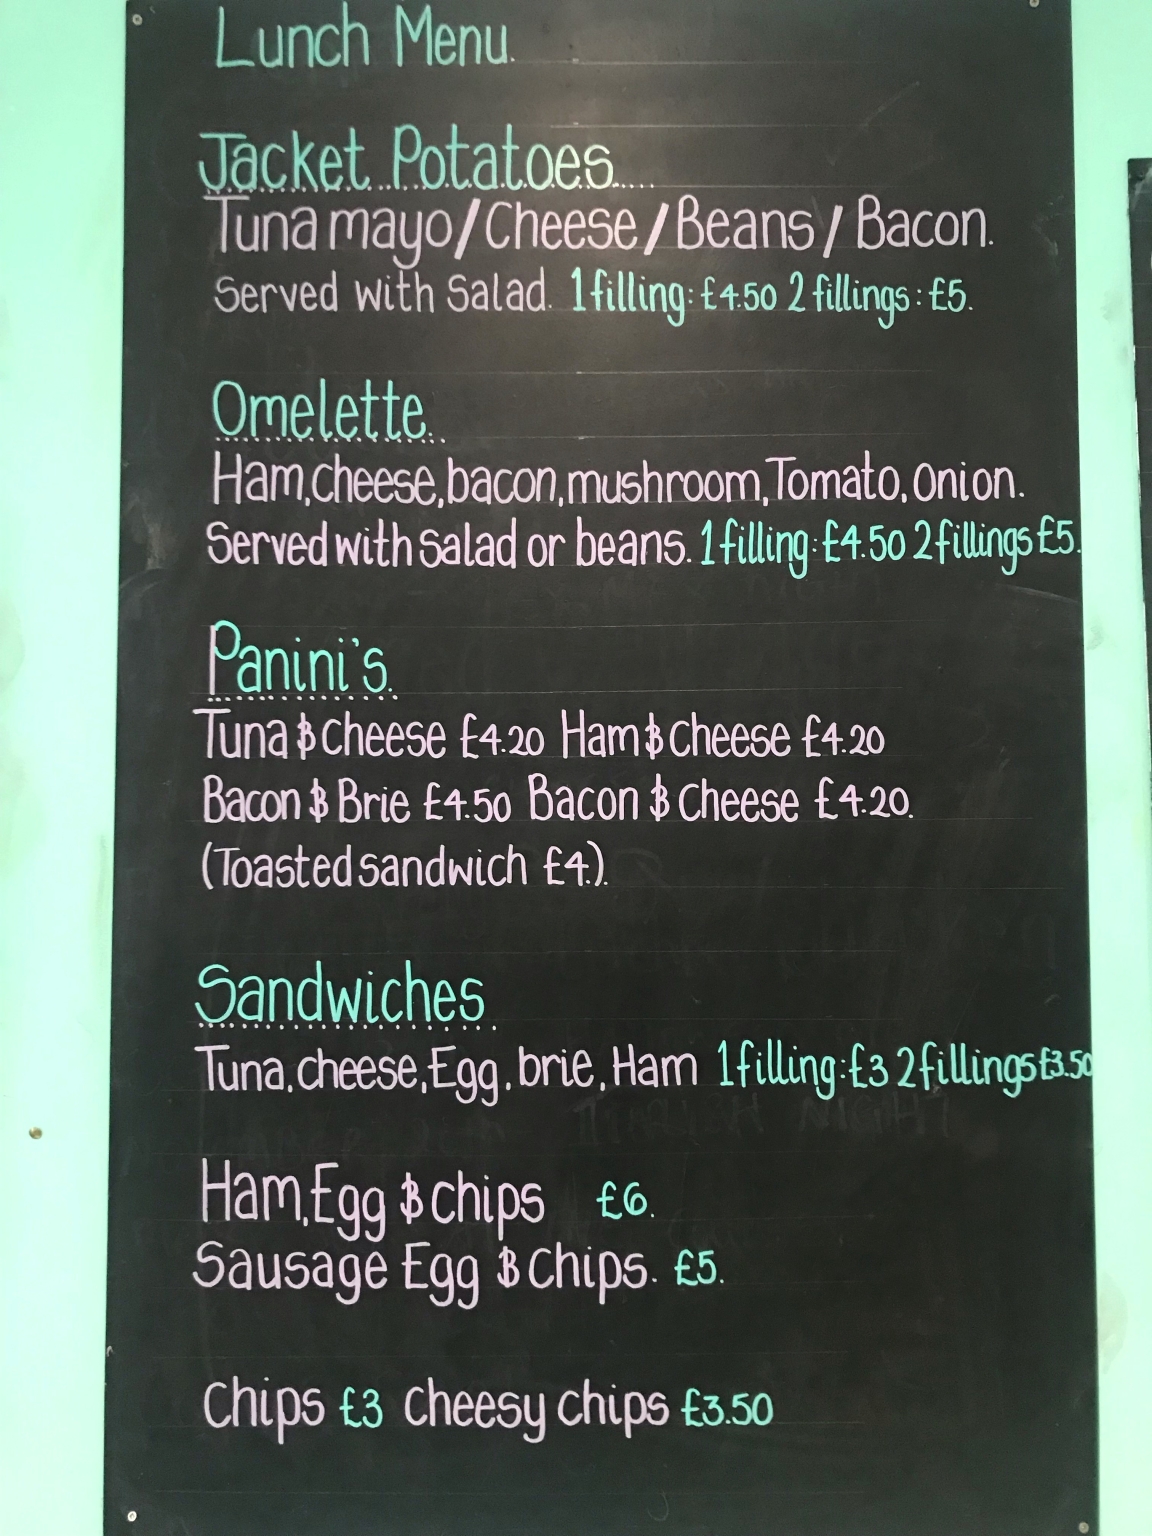 Lunch Menu.
Jacket Potatoes
Tuna mayo/Cheese/Beans/Bacon.
Served with Salad. 1 filling: £4.50 2 fillings: £5.
Omelette
Ham, cheese, bacon, mushroom, Tomato, Onion.
Served with Salad or beans. 1 filling: £4.50 2 fillings £5.
Panini's
Tuna & Cheese £4.20 Ham & Cheese £4.20
Bacon & Brie £4.50 Bacon & Cheese £4.20.
(Toasted sandwich £4.).
Sandwiches
Tuna, cheese, Egg, brie, Ham 1 filling: £3 2 fillings £3.50
Ham, Egg & chips £6.
Sausage Egg & Chips. £5.
Chips £3 Cheesy chips £3.50